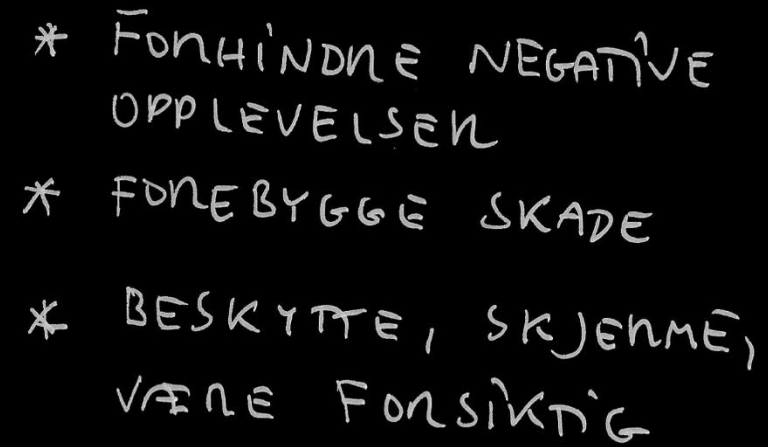 * FORHINDRE NEGATIVE
OPPLEVELSER
* FOREBYGGE SKADE
* BESKYTTE, SKJERME,
VÆRE FORSIKTIG